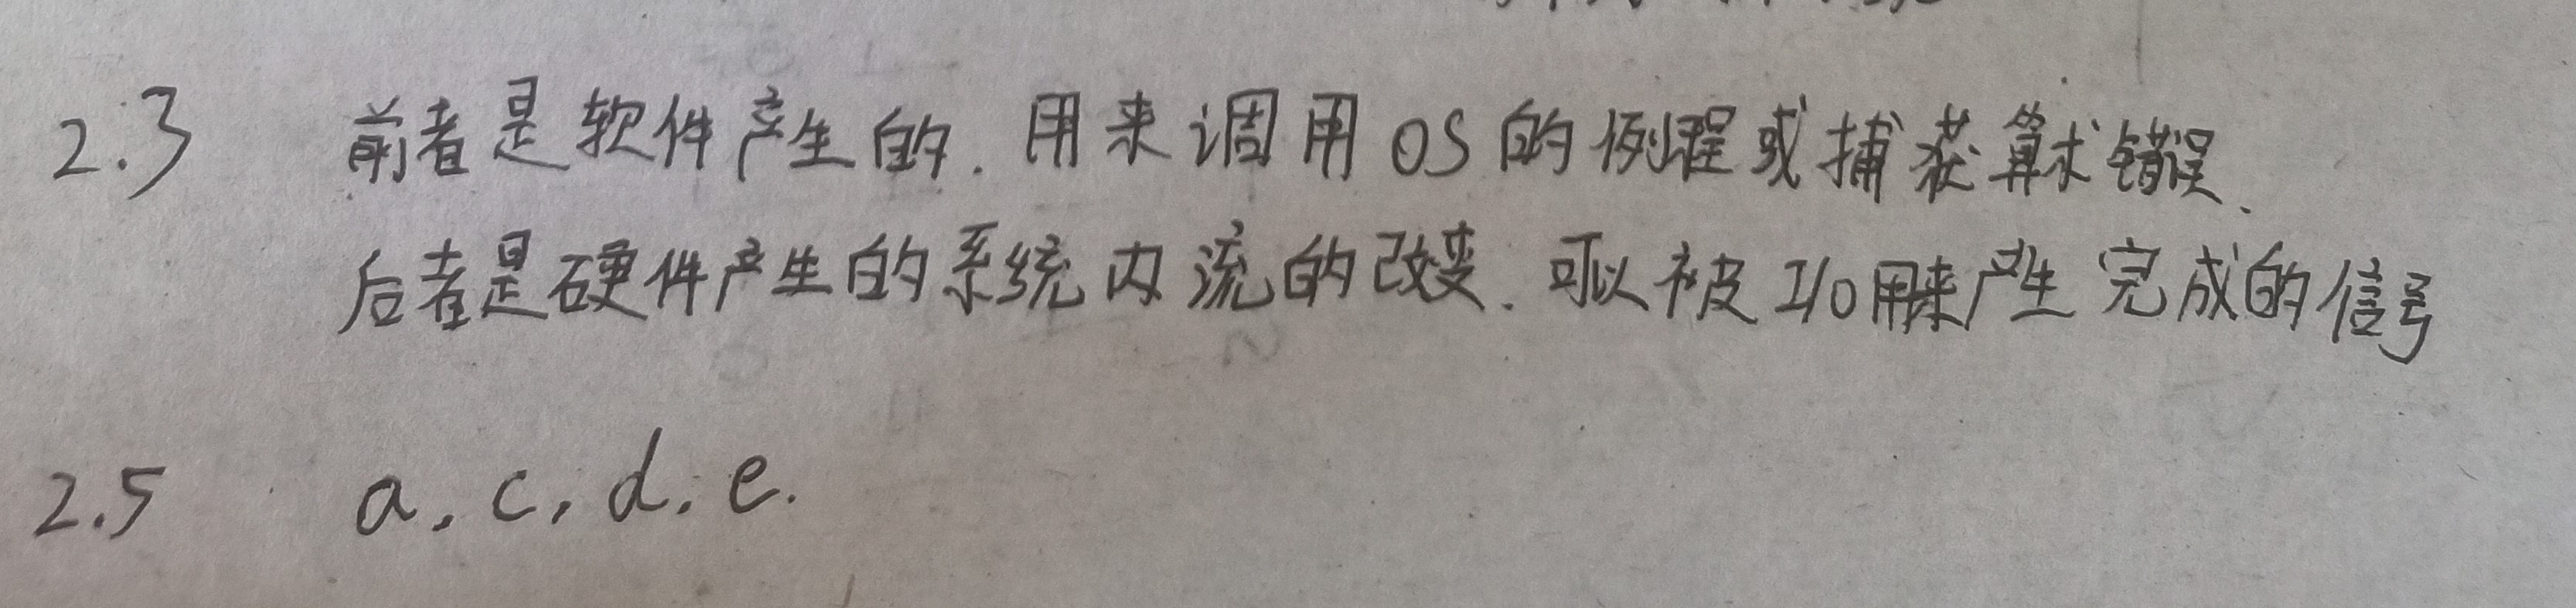 2.3 前者是软件产生的. 用来调用 OS 的例程或捕获算术错误.
后者是硬件产生的系统内流的改变. 可以被 I/O用来产生 完成的信号
2.5 a, c, d, e.